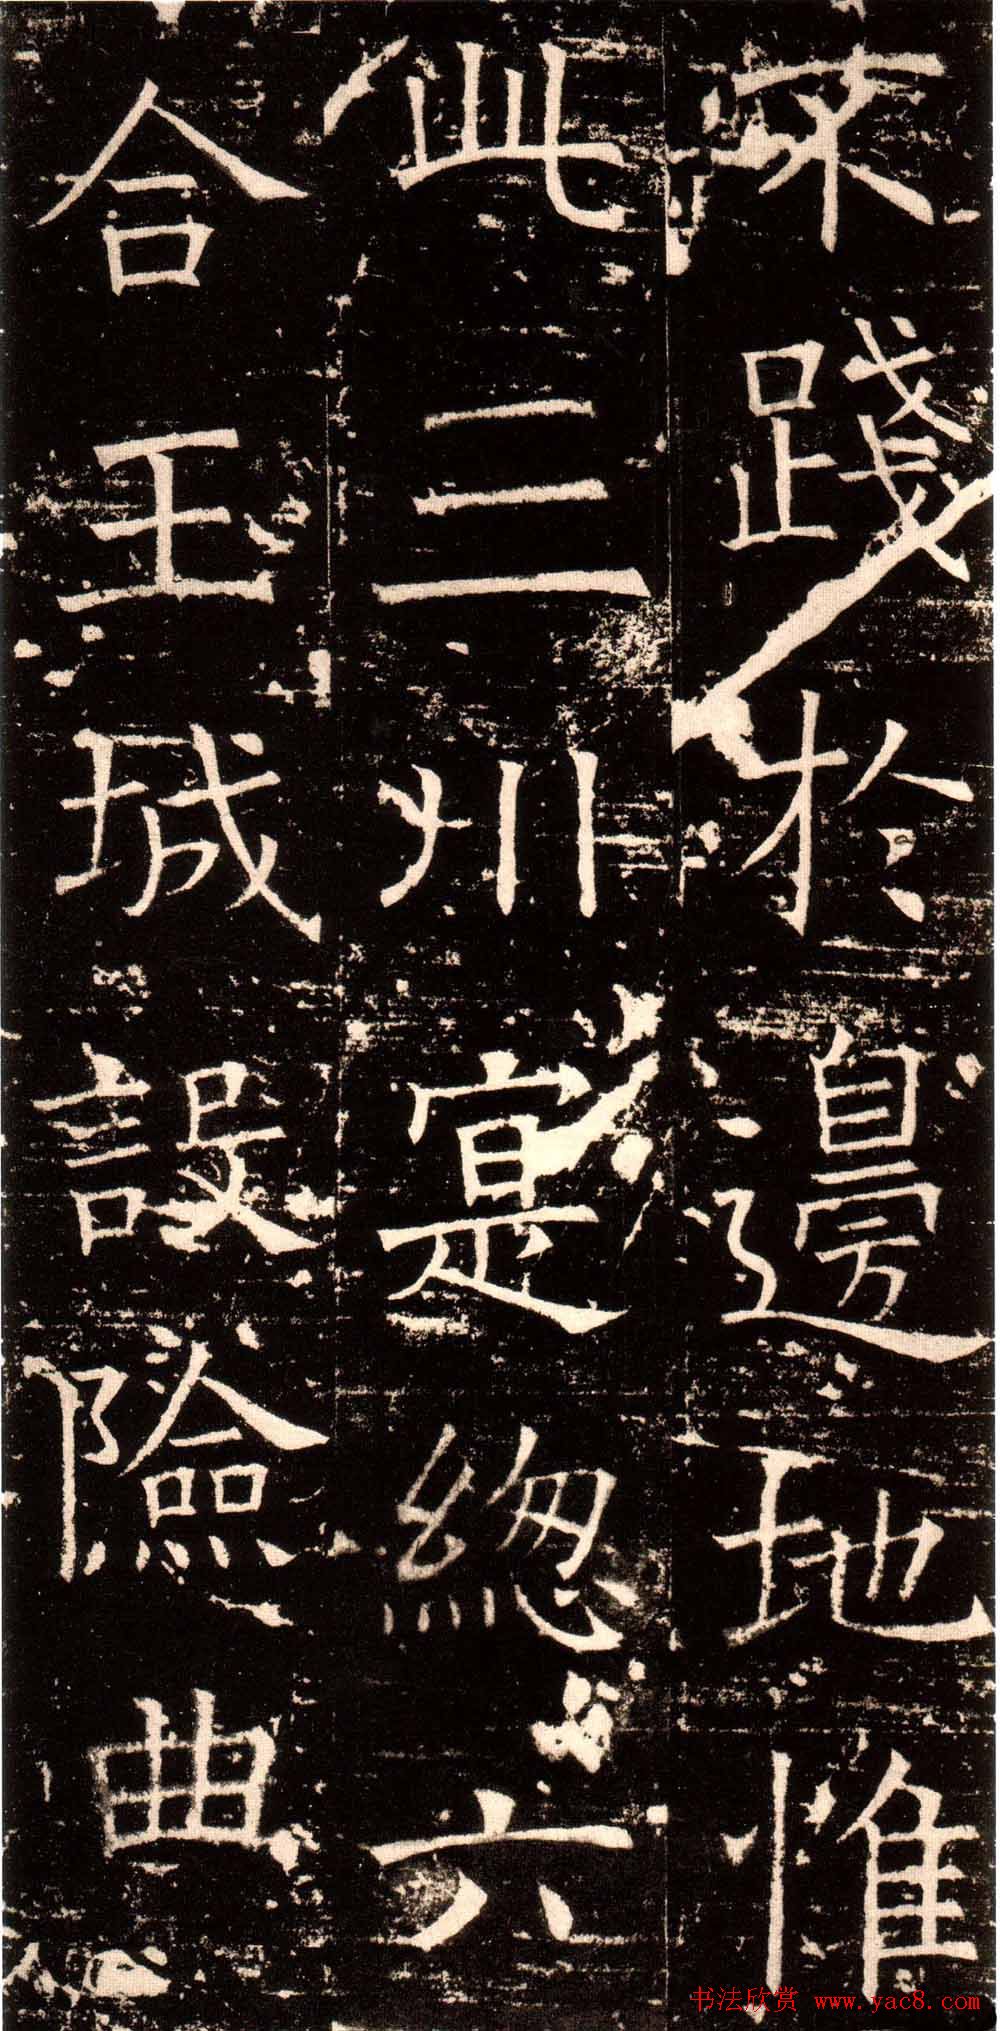 不踐於邊地惟
此三州寔總六
合王城設險曲
书法欣赏 www.yac8.com